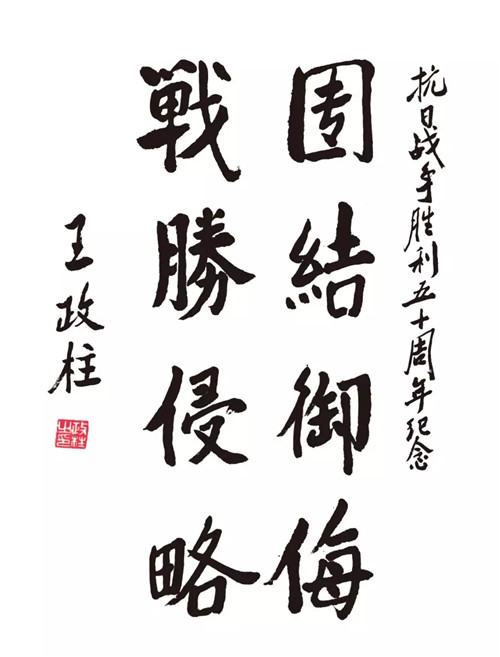 抗日战争胜利五十周年纪念
團結御侮
戰勝侵略
王政柱
政柱之印